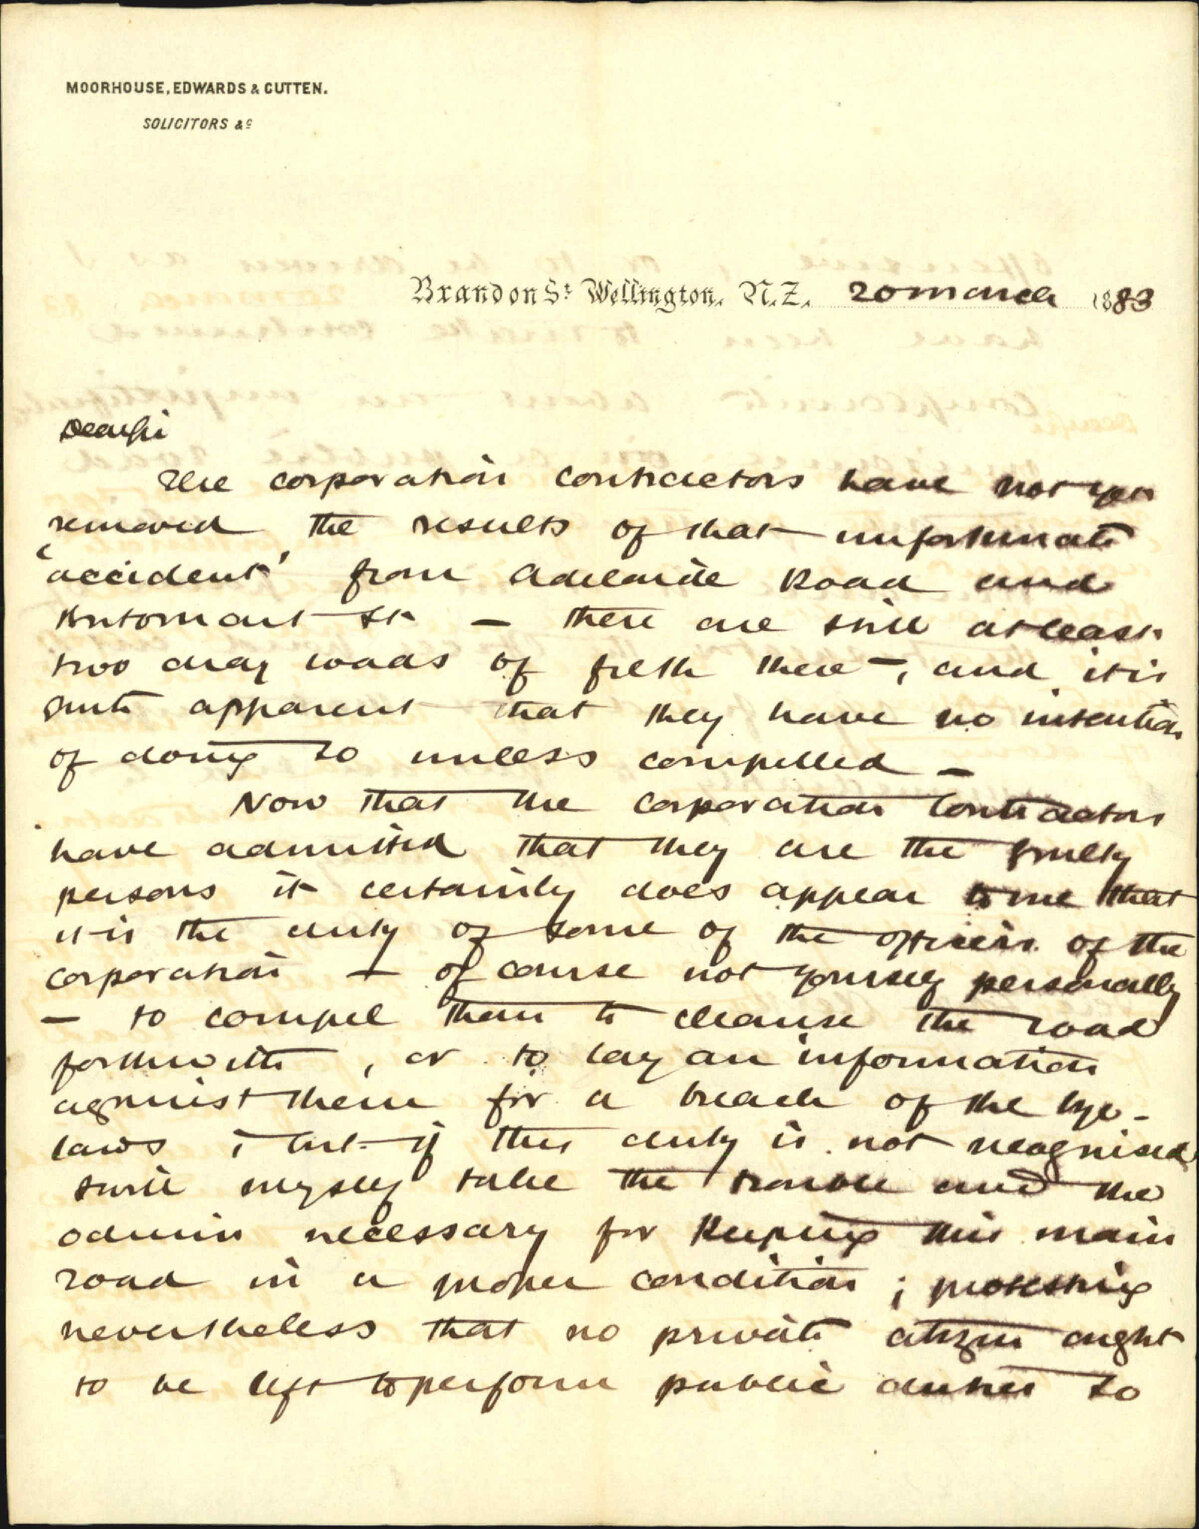 MOORHOUSE, EDWARDS & CUTTEN.
SOLICITORS &c
Brandon St Wellington, N.Z. 20 March 1883
Dear Sir
The corporation contractors have not yet
removed the results of that unfortunate
'accident' from Adelaide Road and
St - there are still at least
two dray loads of filth there -, and it is
quite apparent that they have no intention
of doing so unless compelled -
Now that the corporation contractors
have admitted that they are the guilty
persons it certainly does appear to me that
it is the duty of some of the officers of the
corporation - of course not yourself personally
- to compel them to cleanse the road
forthwith, or to lay an information
against them for a breach of the bye-
laws; but if this duty is not recognised
I will myself take the trouble and the
odium necessary for keeping this main
road in a proper condition; protesting
nevertheless that no private citizen ought
to be left to perform public duties so